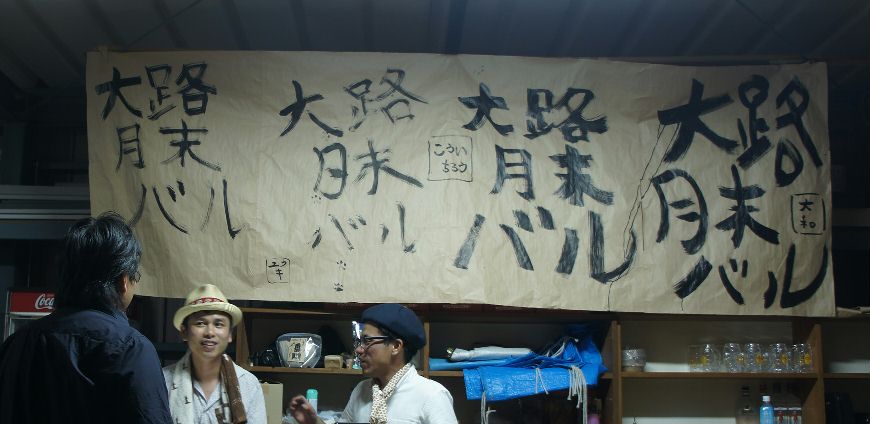 大路
月末
バル
ユウ
キ
大路
月末
バル
こうい
ちろう
大路
月末
バル
大路
月末
バル
大
和
Coca